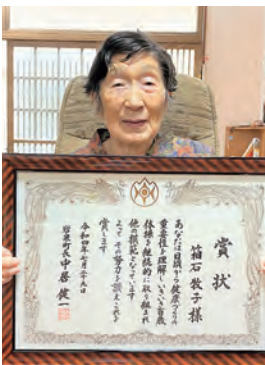 賞状
箱石牧子様
あなたは日頃から健康づくりの
重要性を理解しいきいき百歳
体操を継続的に取り組まれ
他の模範となっています
よってその努力を讃えこれを
賞します
令和四年七月二十九日
岩泉町長中居健一